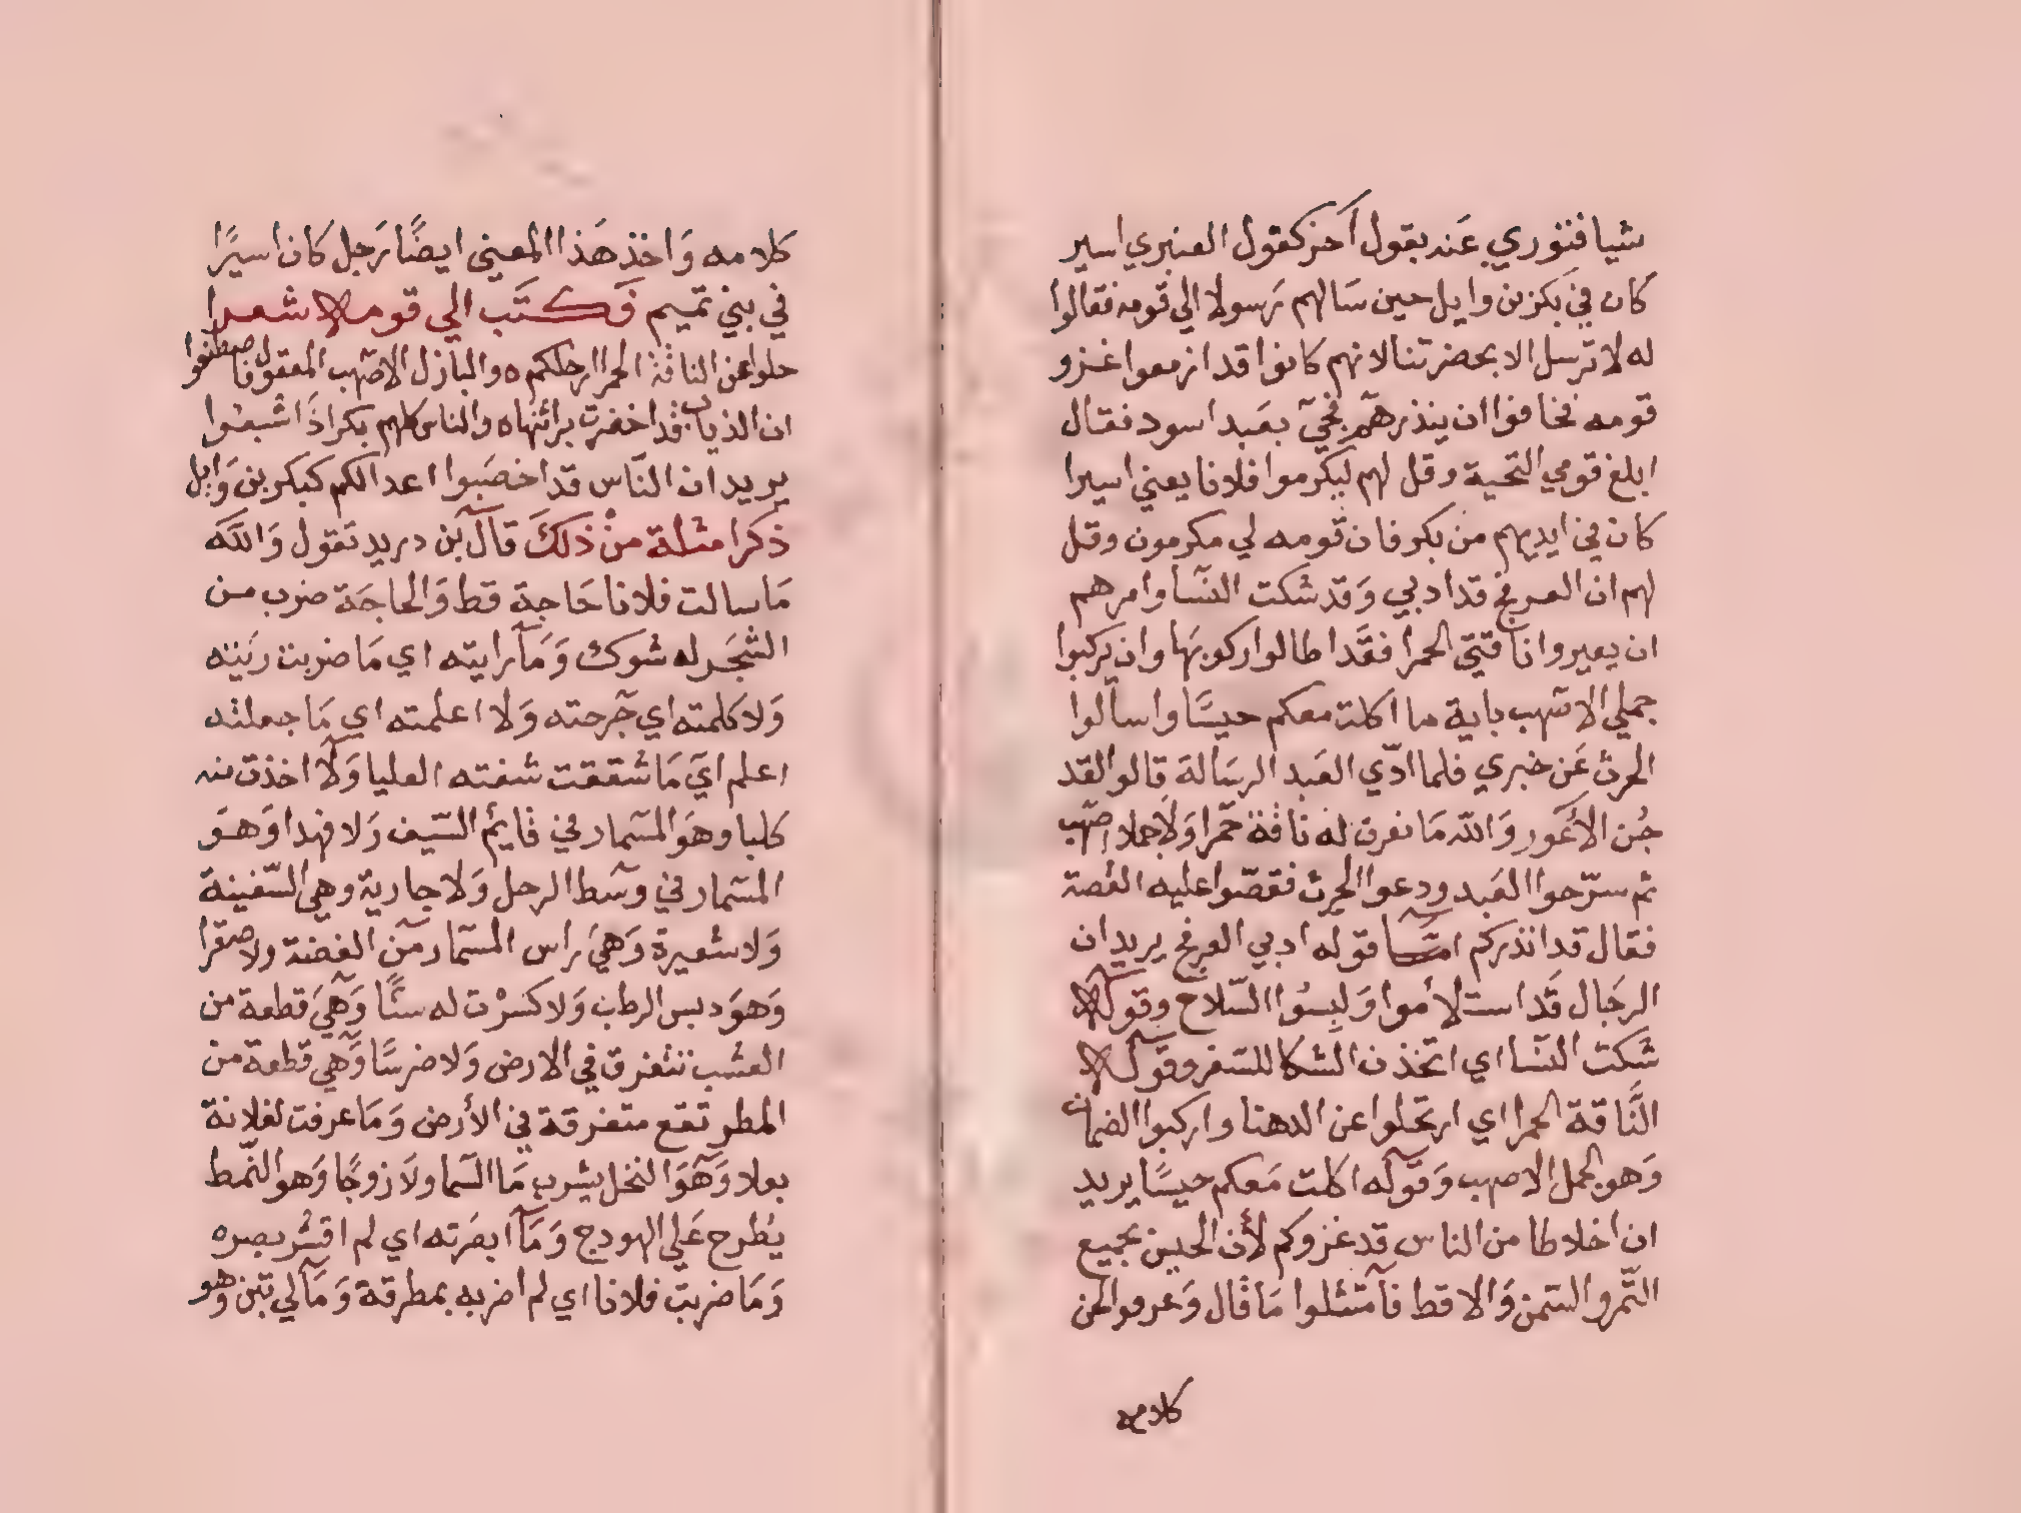 شيا فتوري عَند بقول أَخر كقول العنبري اسير
كان في بَكر بن وايل حين سَالهم رَسولا الي قومه فقالوا
له لا ترسل الا بحضرتنا لانهم كانوا قد ازمعوا غزو
قومه فخافوا ان ينذرهم فجيَ بعَبد اسود فقال
ابلغ قومي التحية وقل لهم ليكرموا فلانا يعني اسيرا
كان في ايديهم من بكر فان قومه لي مكرمون وقل
لهم ان العرفج قد ادبي وَقد شكت النسا وامرهم
ان يعيروا ناقتي الحمرا فقَد اطالوا ركوبهَا وان يركبوا
جملي الاصَهب باية ما اكلت معكم حيسًا واسالوا
الحرث عَن خبري فلما ادّي العَبد الرسَالة قالوا لقد
جُن الأعَور وَالله مَا نعرف له ناقة حَمرا وَلا جملا اصَهب
ثم سرّحوا العَبد ودعوا الحرث فقصّوا عليه القصة
فقال قد انذركم امّا قوله ادبي العرفج يريد ان
الرجَال قَد استلأموا وَلبِسُوا السّلاح وقوله
شَكت النسَا اي اتخذن الشكا للسّفر وقوله
النَّاقة الحمرا اي ارتحَلوا عن الدهنا واركبوا الصمان
وَهو الجمل الاصهب وَقَوله اكلت مَعكم حيسًا يريد
ان اخلاطا من الناس قد غزوكم لأن الحيس يجميع
التّمر والسَّمن وَالاقط فآمتثلوا مَا قال وَعرفوا لحن
كلامه
كلامه وَاخذ هَذا المعني ايضًا رَجل كان اسيرًا
في بني تميم فَكتَب الي قومه شعرا
حلوا عن الناقة الحمرا ارحلكم ه والبازل الاصَهب المعقول فاصطنعوا
ان الذياب قد اخضرت براثنها ه والناس كلهم بكر اذَا شبعُوا
يريد ان النّاس قد اخصَبوا اعدا لكم كبكر بن وَايل
ذكر امثلة منْ ذلكَ قالَ بَن دريد تقول وَاللَه
مَا سالت فلانا حَاجة قط وَالحاجَة ضرب من
الشَجَر له شوك وَمَآ رايته اي مَا ضربت ريَته
وَلا كلمته اي جَرحته وَلا اعلمته اي مَا جعلته
اعلم ايَ مَا شققت شفته العليا وَلَا اخذت منه
كلبا وهوَ المسَمار في قايمُ السّيف وَلا فهدا وَهوَ
المسَمار في وسَط الرحل وَلا جارية وهي السّفينة
وَلا شعيرة وَهيَ رَاس المسَمار من الفضة ولا صقرا
وَهوَ دبس الرطب وَلا كسرْت له سنًّا وَهيَ قطعة من
العشب تتفرق في الارض وَلا ضرسًا وَهي قطعة من
المطر تقع متفرقة في الأرض وَمَا عرفت لفلانة
بعلا وَهَوَ النخل يشرب مَا السَما ولا زوجًا وَهو النّمط
يُطرح عَلي الهودج وَمَآ ابصَرته اي لم اقشُر بصره
وَمَا ضربت فلانا اي لم اضربه بمطرقة وَمَآ لي تبن وَهو